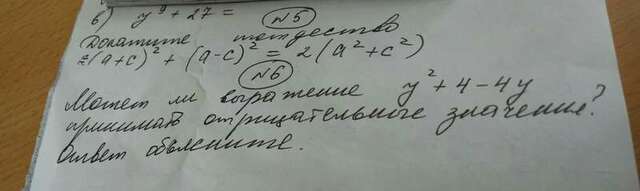 б) y⁹ + 27 =
№5
Докажите тождество
(a+c)² + (a-c)² = 2(a² + c²)
№6
Может ли выражение y² + 4 - 4y
принимать отрицательное значение?
Ответ объясните.